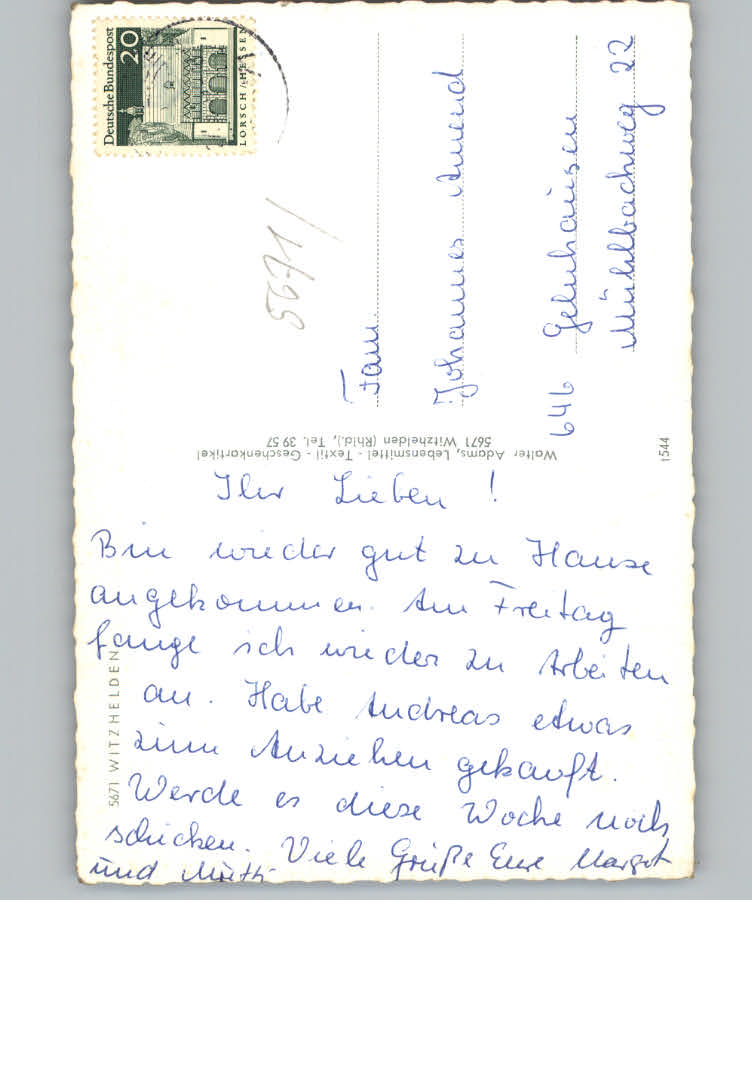 Deutsche Bundespost
20
LORSCH/HESSEN
5671
Fam.
Johannes Amend
646 Gelnhausen
Mühlbachweg 22
Walter Adams, Lebensmittel - Textil - Geschenkartikel
5671 Witzhelden (Rhld.), Tel. 39 57
1544
5671 WITZHELDEN
Ihr Lieben!
Bin wieder gut zu Hause
angekommen. Am Freitag
fange ich wieder zu Arbeiten
an. Habe Andreas etwas
zum Anziehen gekauft.
Werde es diese Woche noch
schicken. Viele Grüße Eure Margot
und Mutti